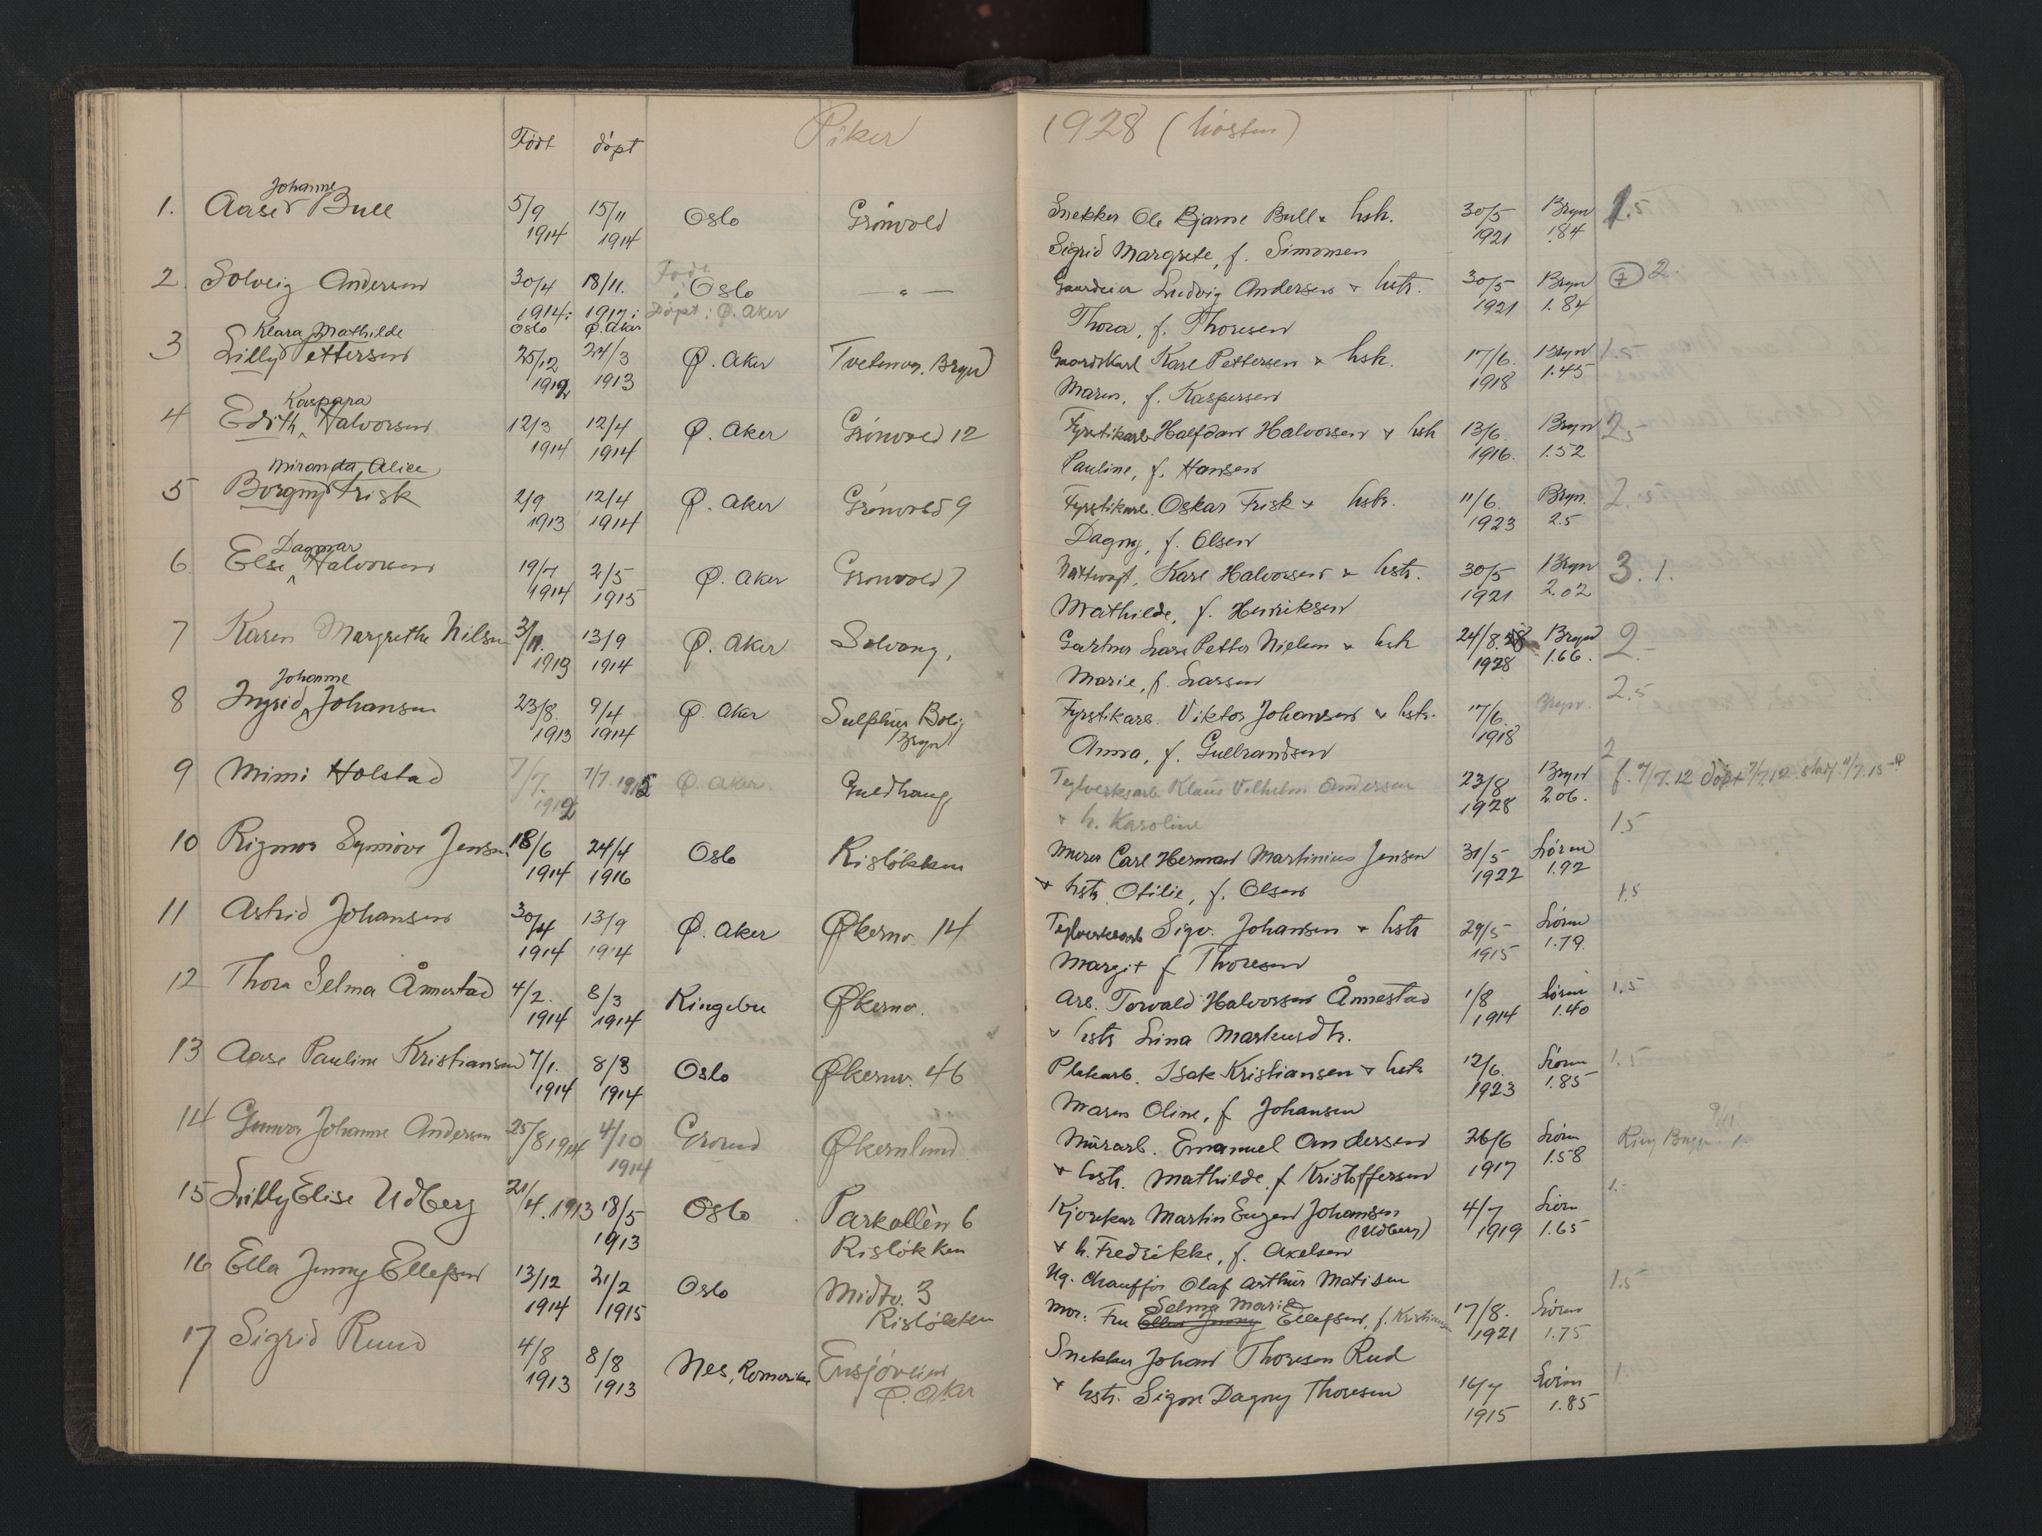 Piker 1928 (høsten)
Født døpt
Johanne
1. Aase Bull 5/9 1914 15/11 1914 Oslo Grønvold Snekker Ole Bjarne Bull & hstr. 30/5 1921 Bryn 1.84 1.5
Sigrid Margrete, f. Simonsen
2. Solveig Andersen 30/4 1914: Oslo 18/11. 1917: Ø. Aker Født: Oslo Døpt: Ø. Aker — " — Ludvig Andersen & hstr. 30/5 1921 Bryn 1.84 2.
Thora, f. Thoresen
Klara Mathilde
3 Lilly Pettersen 25/12 1912 24/3 1913 Ø. Aker Tvetenvn. Bryn Gaardskarl Karl Pettersen & hstr. 17/6. 1918 Bryn 1.45 1.5
Maren, f. Kaspersen
Kaspara
4 Edith Halvorsen 12/3 1914 12/4 1914 Ø. Aker Grønvold 12 Fyrstikarb. Halfdan Halvorsen & hstr 13/6. 1916. Bryn 1.52 2.5
Pauline, f. Hansen
Miranda Alice
5 Borgny Frisk 2/9 1913 12/4 1914 Ø. Aker Grønvold 9 Fyrstikarb. Oskar Frisk & hstr. 11/6. 1923 Bryn. 2.5 2.5
Dagny, f. Olsen
Dagmar
6. Else Halvorsen 19/7 1914 2/5 1915 Ø. Aker Grønvold 7 Nattvagt, Karl Halvorsen & hstr. 30/5 1921 Bryn 2.02 3.1.
Mathilde, f. Henriksen
7 Karen Margrethe Nilsen 3/11. 1913 13/9 1914 Ø. Aker Solvang, Gartner Lars Petter Nielsen & hstr 24/8. 1928 Bryn 1.66. 2.
Marie, f. Larsen
Johanne
8 Ingrid Johansen 23/8. 1913 9/4 1914 Ø. Aker Sulphur Bolig Bryn Fyrstikarb. Viktor Johansen & hstr. 17/6. 1918 Bryn. 2.5
Anna, f. Gulbrandsen
9 Mimi Holstad 7/7. 1912 7/7. 1912 Ø. Aker. Guldhaug Teglverksarb Klaus Vilhelm Andersen 23/8 1928 Bryn 2.06. 2 f. 7/7.12 døpt 7/7.12
& h. Karoline
10 Rigmor Synnøve Jensen. 18/6 1914 24/4 1916 Oslo Risløkken Murer Carl Herman Martinius Jensen 31/5 1922 Løren 1.92 1.5
& hstr. Otilie, f. Olsen
11 Astrid Johansen 30/4 1914 13/9 1914 Ø. Aker Økernv. 14 Teglverksarb Sigv. Johansen & hstr 29/5 1915 Løren 1.79. 1.5
Margit f. Thoresen
12 Thora Selma Ånnestad 4/2. 1914 8/3 1914 Ringebu Økernv. Arb. Torvald Halvorsen Ånnestad 1/8 1914 Løren 1.40 1.5
& hstr Lina Markusdtr.
13 Aase Pauline Kristiansen 7/1. 1914 8/3 1914 Oslo Økernv. 46 Platarb. Isak Kristiansen & hstr 12/6. 1923 Løren 1.85 1.5
Maren Oline, f. Johansen
14 Gunvor Johanne Andersen 25/8 1914 4/10 1914 Grorud Økernlund Murarb. Emanuel Andersen 26/6 1917 Løren 1.58
& hstr. Mathilde, f. Kristoffersen
15 Lilly Elise Udberg 21/4. 1913 18/5 1913 Oslo Parkallèn 6 Risløkken Kjørekar Martin Eugen Johansen (Udberg) 4/7 1919 Løren 1.65 1.-
& h. Fredrikke, f. Axelsen
16 Ella Jenny Ellefsen 13/12 1914 21/2 1915 Oslo Midtv. 3 Risløkken Ug. Chauffør Olaf Arthur Matisen
Mor. Fru Selma Marie Ellefsen, f. Kristiansen 17/8. 1921 Løren 1.75 1.5
17 Sigrid Ruud 4/8 1913 8/8 1913 Nes, Romerike Ensjøveien Ø. Aker Snekker Johan Thoresen Rud
& hstr. Signe Dagny Thoresen 16/7 1915 Løren 1.85 1.